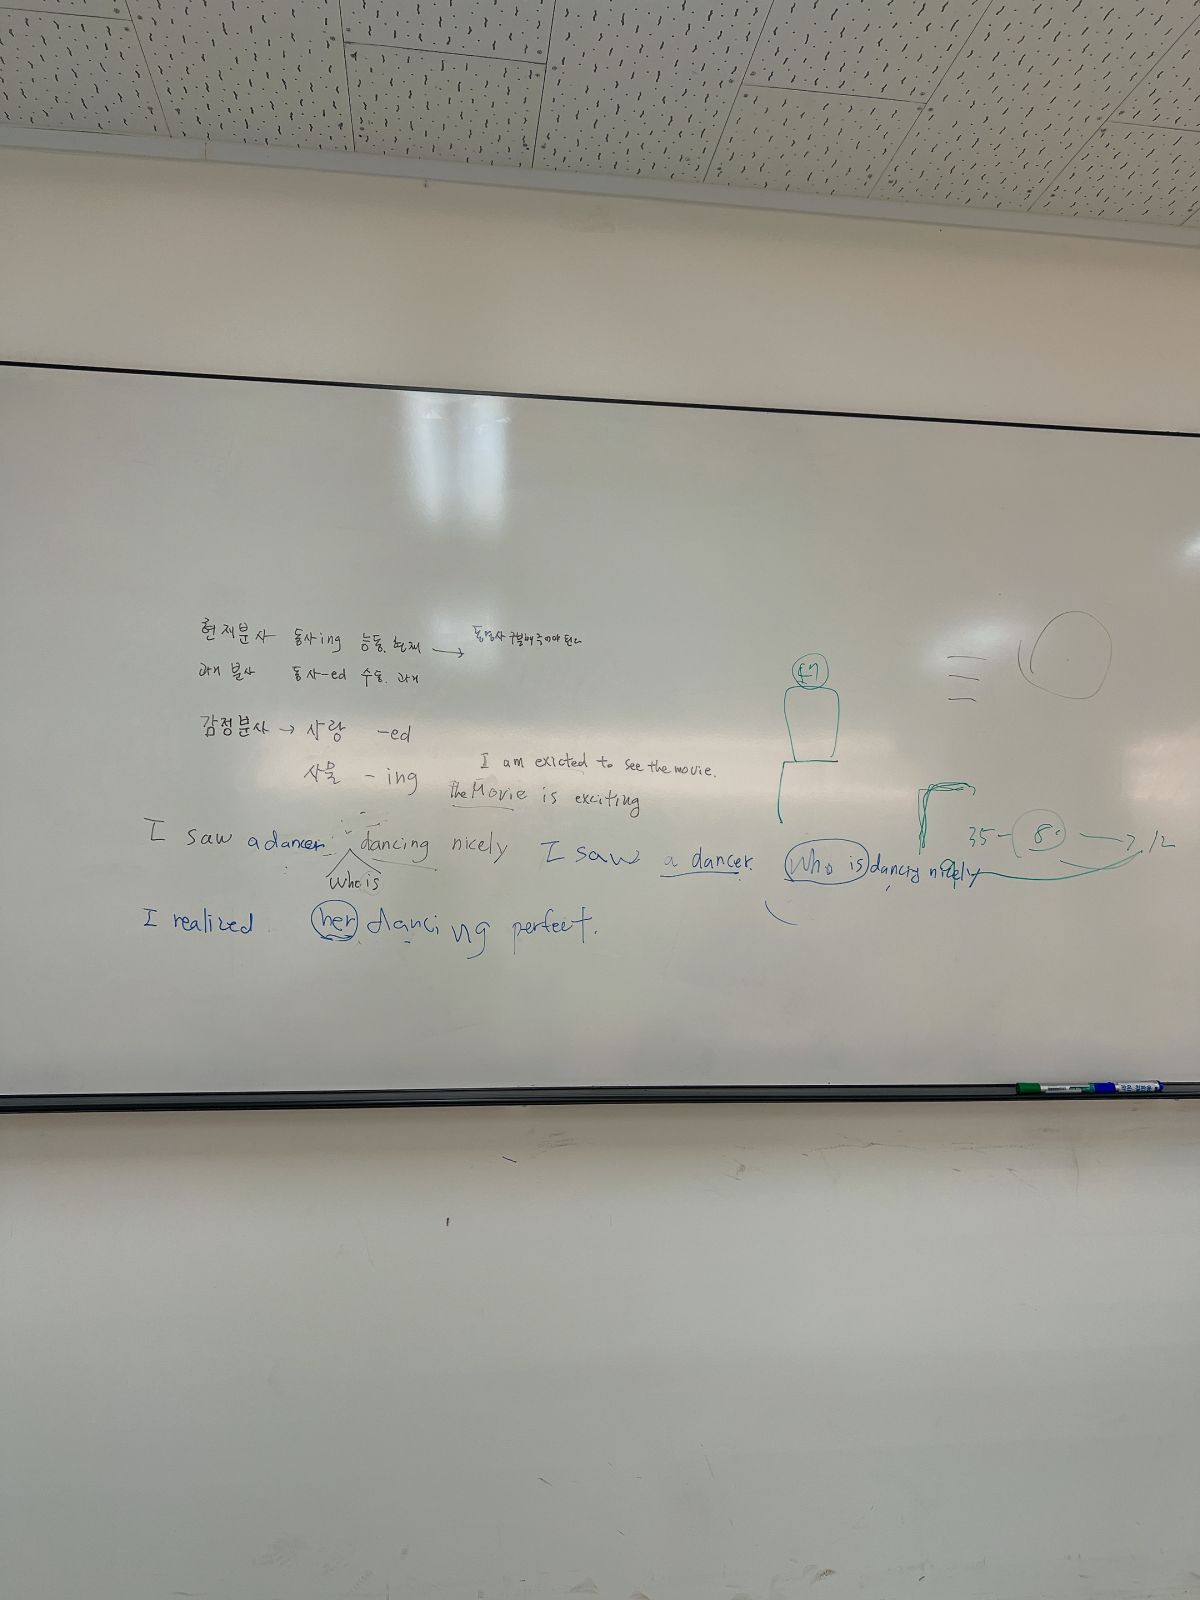 현재분사 동사ing 능동, 현재 → 동명사 구분해 주어야 된다
과거 분사 동사-ed 수동, 과거
감정분사 → 사람 -ed
사물 - ing
I am exicted to see the movie.
the Movie is exciting
I saw a dancer dancing nicely
who is
I saw a dancer. who is dancing nicely
I realized her dancing perfect.
35- 8. → 7.12